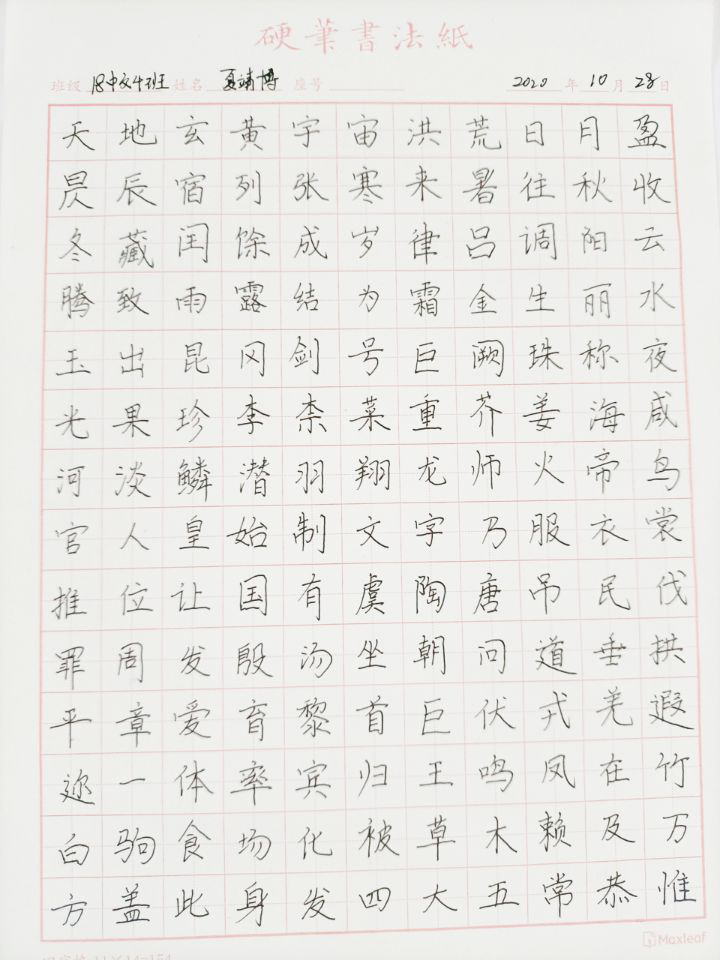 硬筆書法紙
班级 18中文4班 姓名 夏靖博 座号 2020 年 10 月 28 日
天地玄黄宇宙洪荒日月盈
昃辰宿列张寒来暑往秋收
冬藏闰馀成岁律吕调阳云
腾致雨露结为霜金生丽水
玉出昆冈剑号巨阙珠称夜
光果珍李柰菜重芥姜海咸
河淡鳞潜羽翔龙师火帝鸟
官人皇始制文字乃服衣裳
推位让国有虞陶唐吊民伐
罪周发殷汤坐朝问道垂拱
平章爱育黎首巨伏戎羌遐
迩一体率宾归王鸣凤在竹
白驹食场化被草木赖及万
方盖此身发四大五常恭惟
Maxleaf